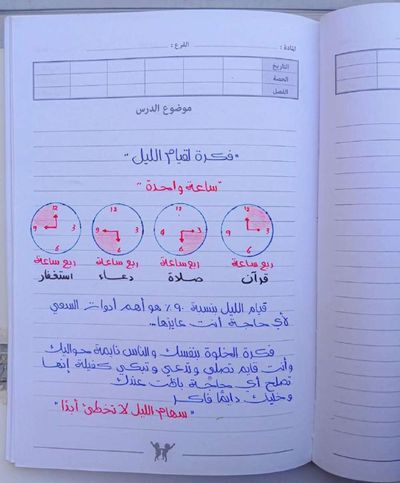 المادة :
الفرع :
التاريخ
الحصة
الفصل
موضوع الدرس
"فكرة لقيام الليل"
"ساعة واحدة"
12 3 6 9
12 3 6 9
12 3 6 9
12 3 6 9
ربع ساعة ربع ساعة ربع ساعة ربع ساعة
قرآن صلاة دعاء استغفار
قيام الليل بنسبة ٩٠٪ هو أهم أدوات السعي
لأي حاجة أنت عايزها...
فكرة الخلوة بنفسك والناس نايمة حواليك
وأنت قايم تصلي وتدعي وتبكي كفيلة إنها
تصلح أي حاجة باظت عندك
وخليك دايمًا فاكر
"سهام الليل لا تخطئ أبدًا"